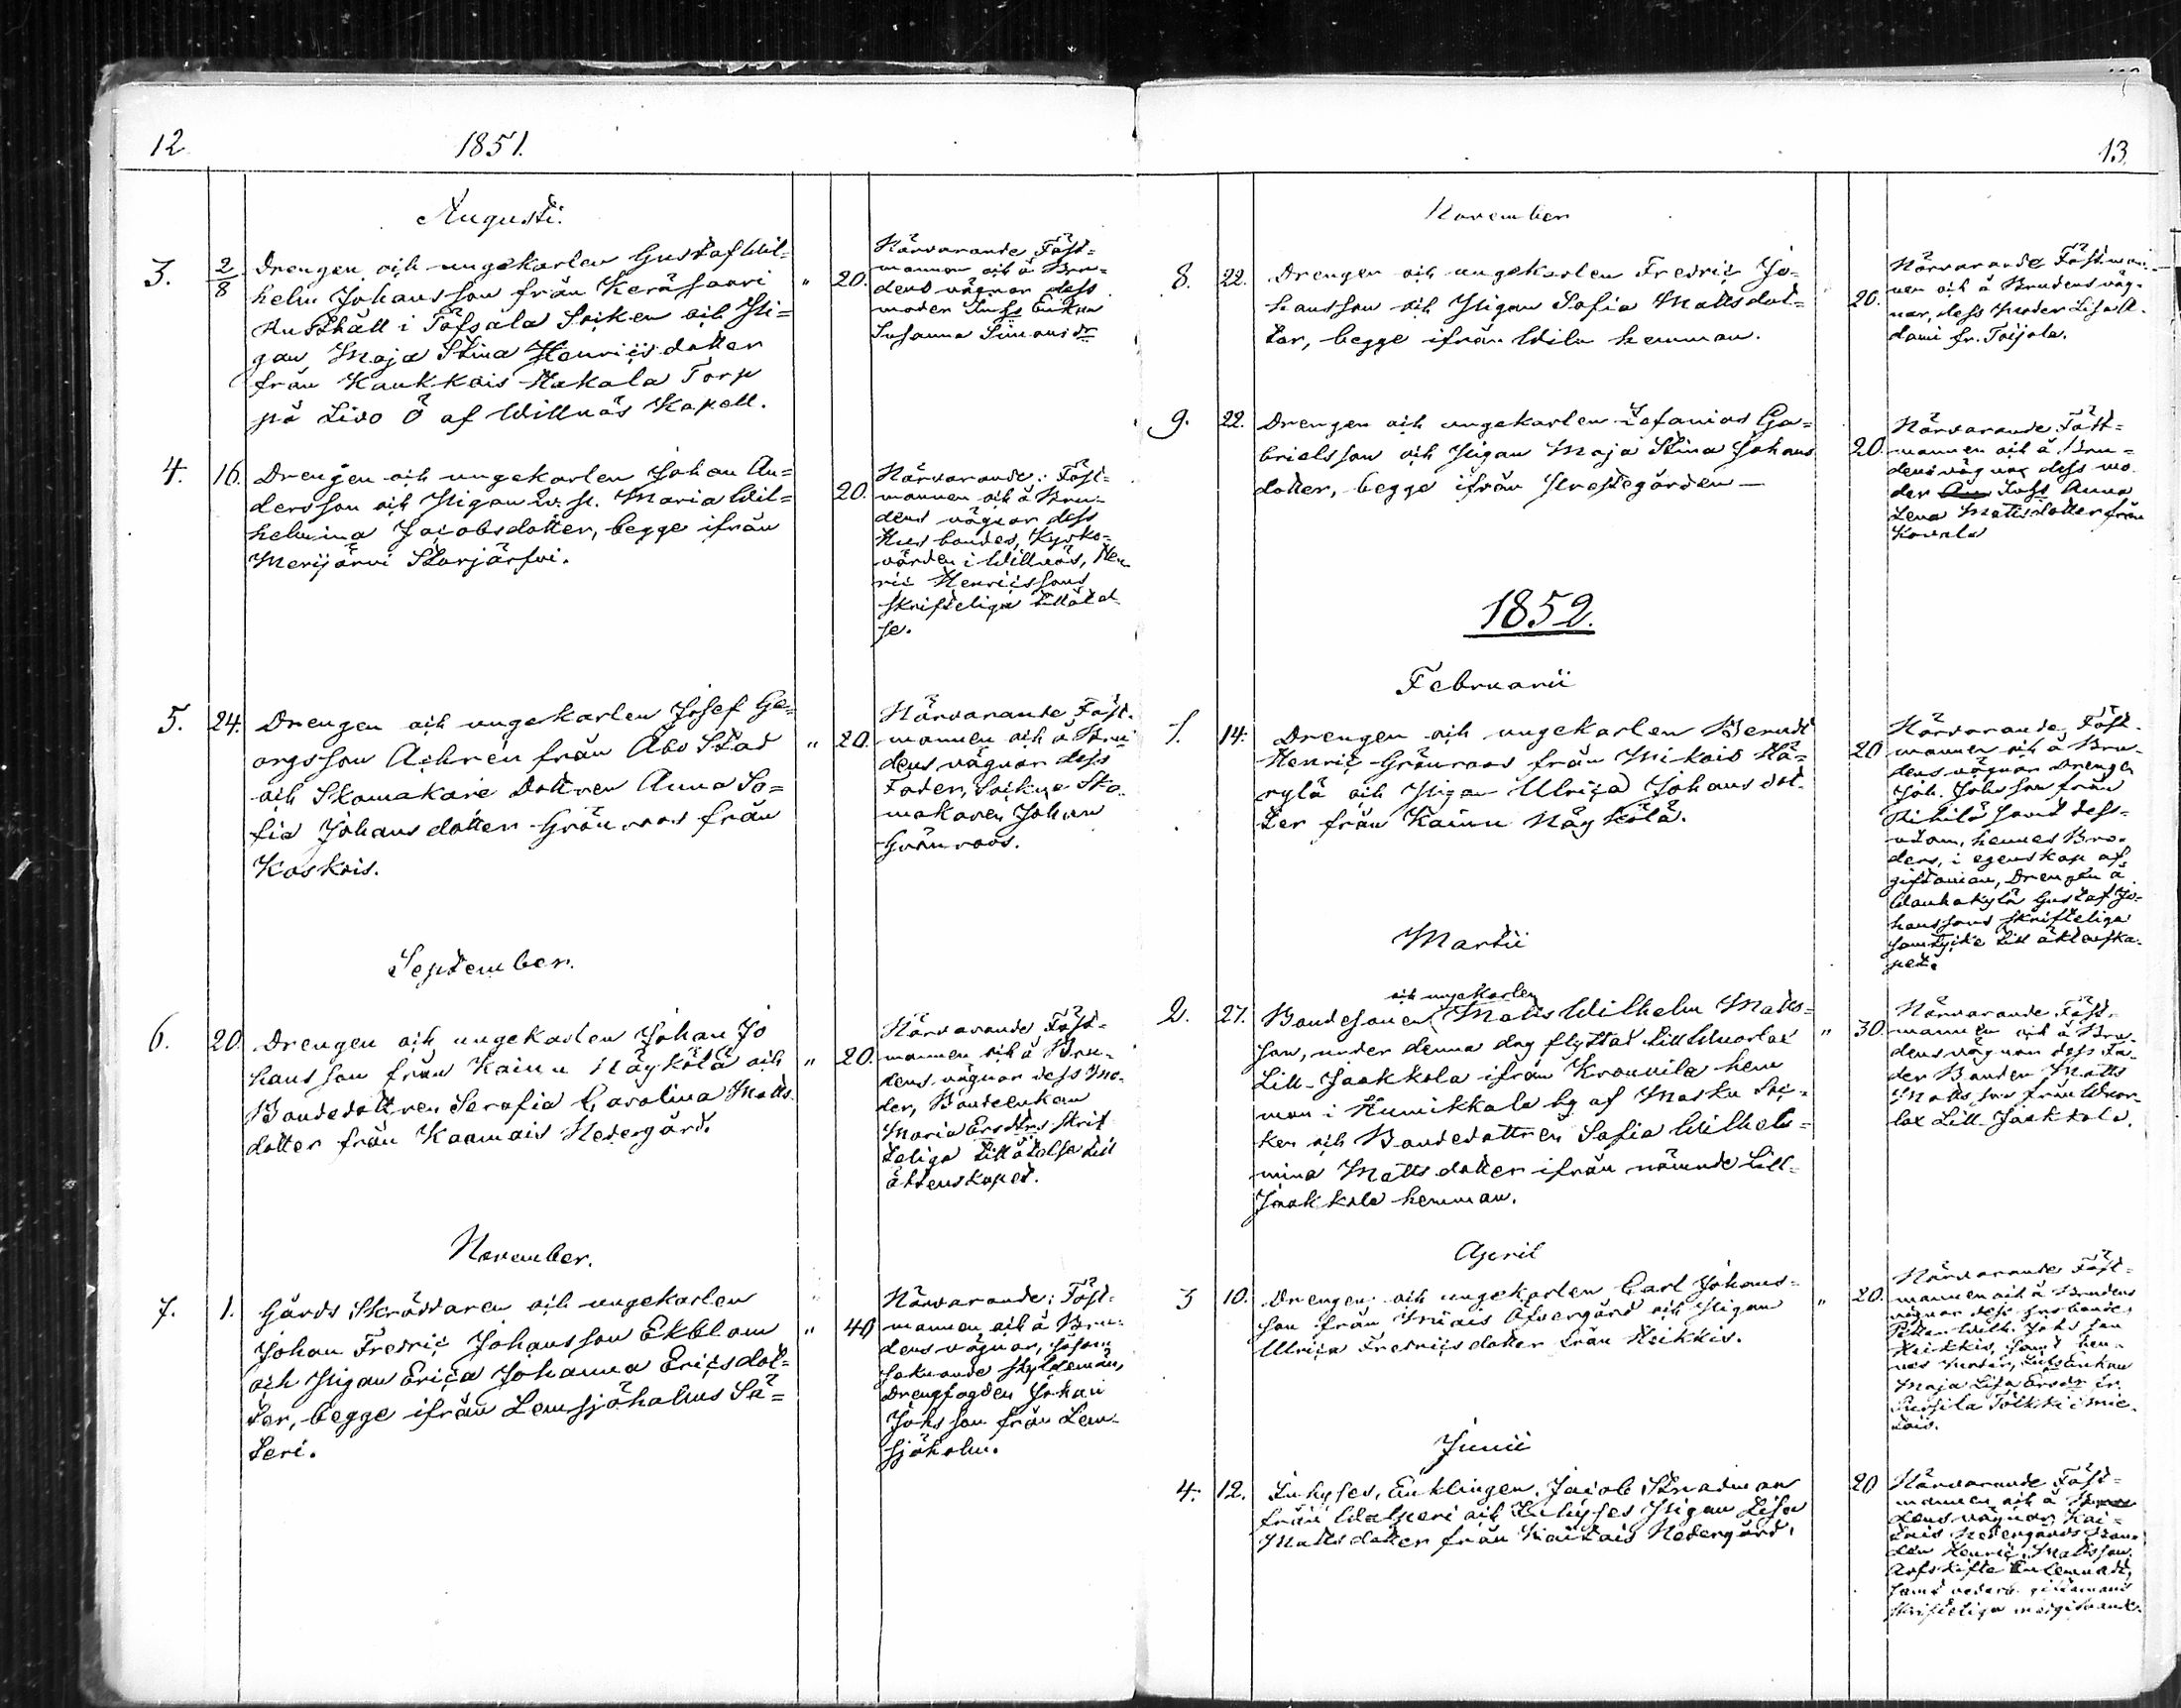 12
1851.
Augusti.
3.
2/8
Drengen och ungekarlen Gustaf Wil=
helm Johansson från Keräsaari
Rusthåll i Töfsala Socken och Pi=
gan Maja Stina Henricsdotter
från Kaukkois Hakala Torp
på Livo Ö af Willnäs Kapell.
" 20.
Närvarande Fäst=
mannen och å Bru=
dens vägnar dess
moder Inhs Enkan
Susanna Simonsdr
4.
16.
Drengen och ungekarlen Johan An=
dersson och Pigan Maria Wil=
helmina Jacobsdotter, begge ifrån
Merijärvi Storjärfvi.
20.
Närvarande: Fäst=
mannen och å Bru=
dens vägnar dess
Husbondes, Kyrko=
värden i Willnäs, Hen
ric Henricssons
skrifteliga tillåtel
se.
5.
24.
Drengen och ungekarlen Josef Ge=
orgsson Achrén från Åbo Stad
och Skomakare Dottren Anna So=
fia Johansdotter Grönroos från
Koskois.
" 20.
Närvarande Fäst=
mannen och å Bru
dens vägnar dess
Fader, Sockne Sko=
makaren Johan
Grönroos.
September.
6.
20.
Drengen och ungekarlen Johan Jo
hansson från Kainu Näykölä och
Bondedottren Serafia Carolina Matts
dotter från Kaamais Nedergård.
" 20.
Närvarande Fäst=
mannen och å Bru=
dens vägnar dess Mo=
der, Bondeenkan
Maria Ersdrs skrif
teliga tillåtelse till
äktenskapet.
November.
7.
1.
Gårds Skräddaren och ungekarlen
Johan Fredric Johansson Ekblom
och Pigan Erica Johanna Ericsdot=
ter, begge ifrån Lemsjöholms Sä=
teri.
" 40
Närvarande: Fäst=
mannen och å Bru=
dens vägnar, såsom
Drengfogden Johan
Johsson från Lem=
sjöholm.
13.
November
8.
22.
Drengen och ungekarlen Fredric Jo=
hansson och Pigan Sofia Mattsdot=
ter, begge ifrån Wilu hemman.
20.
Närvarande Fästman=
nen och å Brudens väg=
nar, dess Moder Lisa A=
dami fr. Toijola.
9.
22.
Drengen och ungekarlen Zefanias Ga=
brielsson och Pigan Maja Stina Johans
dotter, begge ifrån Prestegården —
20.
Närvarande Fäst=
mannen och å Bru=
dens vägnar dess mo=
der Inhs Anna
Lena Mattsdotter från
Kovala
1852.
Februarii
1.
14.
Drengen och ungekarlen Berndt
Henric Grönroos från Mikois Hä=
rylä och Pigan Ulrica Johansdot=
ter från Kainu Näykölä.
20
Närvarande Fäst=
mannen och å Bru=
dens vägnar Drengen
Joh. Johsson från
samt dess=
utom, hennes Bro=
ders, i egenskap af
giftoman, Drengen å
Wanhakylä Gustaf Jo=
hanssons skrifteliga
samtycke till äktenska=
pet.
Martii
2.
27.
och ungekarlen
Bondesonen Matts Wilhelm Matts=
son, under denna dag flyttad till Wuorlax
Lill-Jaakkola ifrån Krouvila hem
man i Humikkala by af Masku Soc=
ken och Bondedottren Sofia Wilhel=
mina Mattsdotter ifrån nämnde Lill=
Jaakkola hemman.
" 30.
Närvarande Fäst=
mannen och å Bru=
dens vägnar dess Fa=
der Bonden Matts
Mattsson från Wuor=
lax Lill-Jaakkola.
April
3
10.
Drengen och ungekarlen Carl Johans=
son från Miais Öfvergård och Pigan
Ulrica Fredricsdotter från Heikkis.
" 20.
Närvarande Fäst=
mannen och å Brudens
vägnar dess husbonde,
Wilh. Johsson
Heikkis, samt hen=
nes Moder, Inhs Enkan
Maja Lisa Ersdr fr.
Junii
4.
12.
Inhyses, Enklingen Jacob Stradman
från Walperi och Inhyses Pigan Lisa
Mattsdotter från Kaitais Nedergård.
20
Närvarande Fäst=
mannen och å
dens vägnar Kai=
tais Nedergårds Bon=
den Henric Mattsson
samt giftomans
skrifteliga medgifvande.